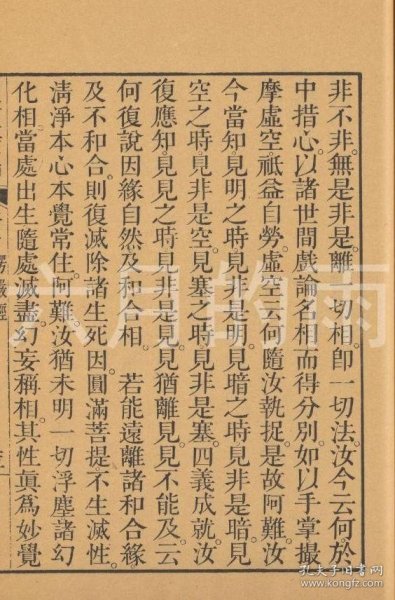 非不非。無是非是。離一切相。卽一切法。汝今云何。於
中措心。以諸世間戲論名相而得分別。如以手掌撮
摩虛空。祇益自勞。虛空云何隨汝執捉。是故阿難。汝
今當知見明之時。見非是明。見暗之時。見非是暗。見
空之時。見非是空。見塞之時。見非是塞。四義成就。汝
復應知見見之時。見非是見。見猶離見。見不能及。云
何復說因緣自然及和合相。　若能遠離諸和合緣
及不和合。則復滅除諸生死因。圓滿菩提不生滅性。
清淨本心。本覺常住。阿難。汝猶未明一切浮塵諸幻
化相。當處出生。隨處滅盡。幻妄稱相。其性眞爲妙覺
楞嚴經
六月的雨
孔夫子旧书网
www.kongfz.com